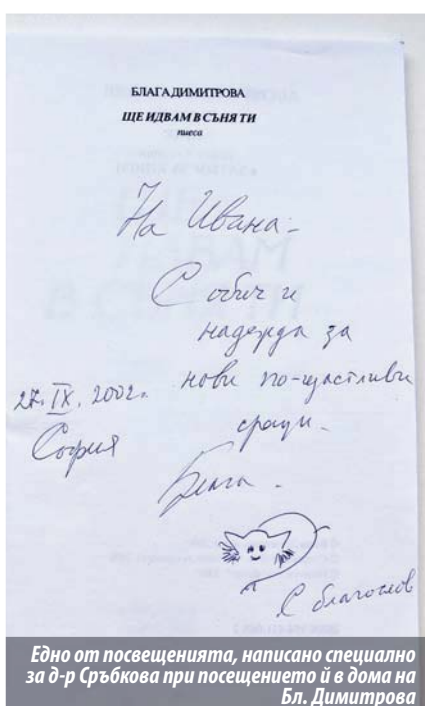 БЛАГА ДИМИТРОВА
ЩЕ ИДВАМ В СЪНЯ ТИ
пиеса
На Ивана -
С обич и
надежда за
нови по-щастливи
срещи.
27. IX. 2002.
София
Блага.
С благослов
Едно от посвещенията, написано специално
за д-р Сръбкова при посещението ѝ в дома на
Бл. Димитрова